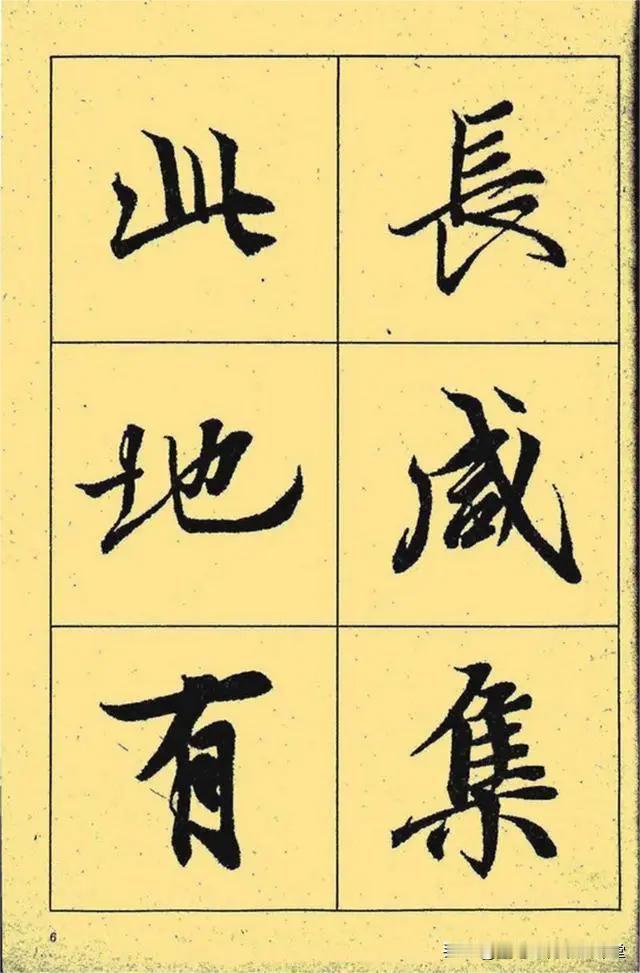 長咸集
此地有
6